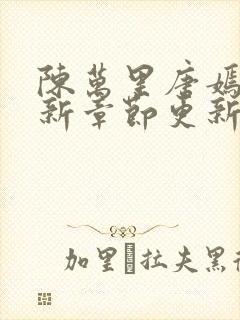 陳萬里唐嫣
新章節更新
加里 拉夫黑